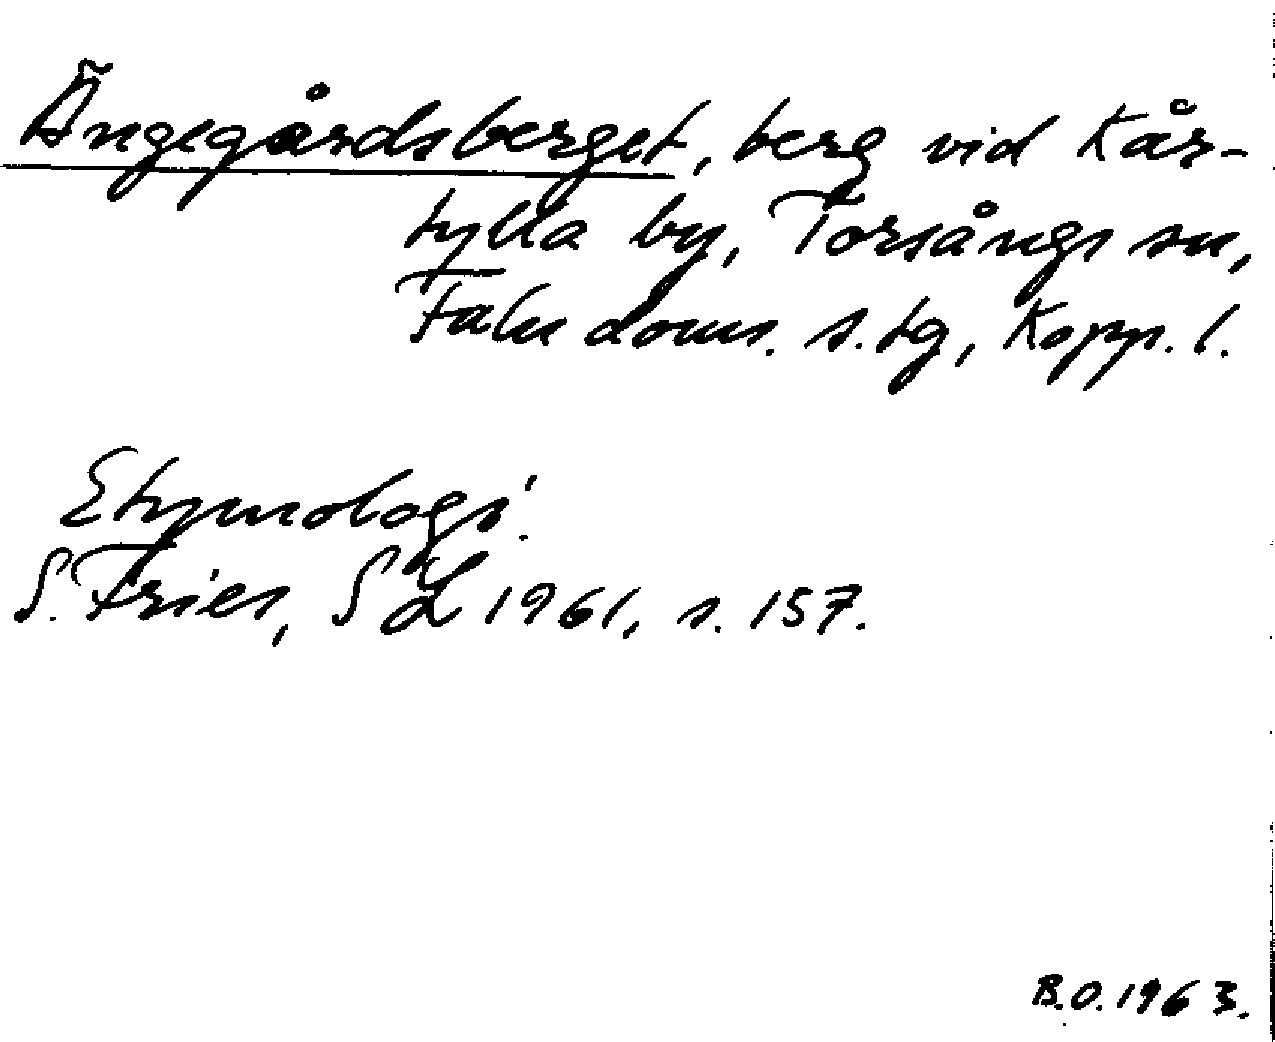 Ängegårdsberget, berg vid Kår-
tylla by, Torsångs sn,
Falu doms. s. tg, Kopp. l.
Etymologi.
S. Fries, SOÄ 1961, s. 157.
B.O. 1963.